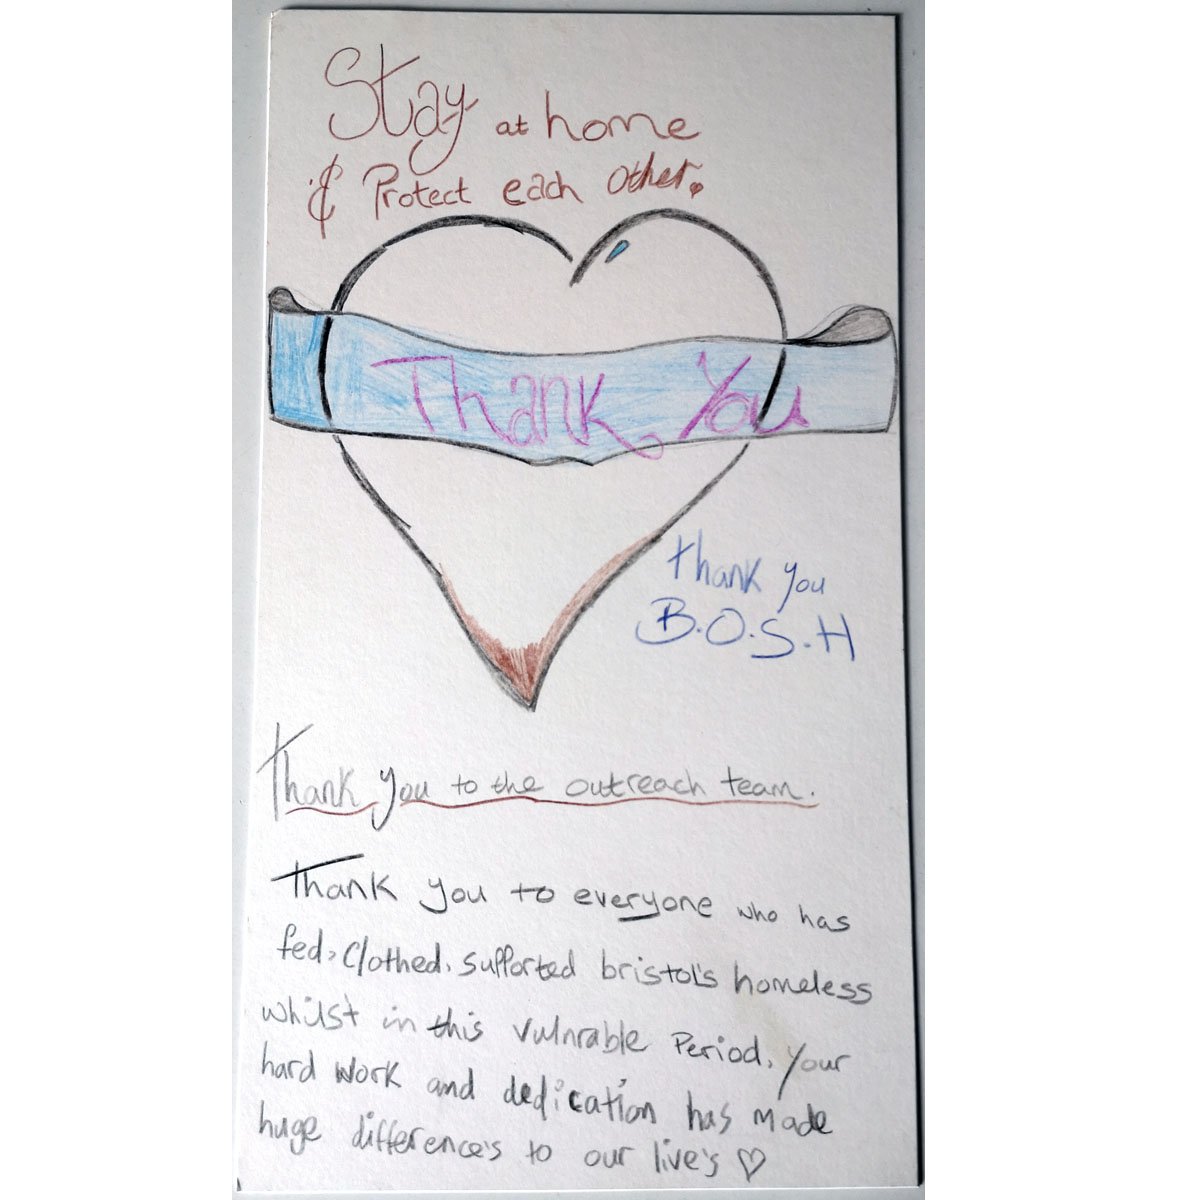 Stay at home
& Protect each other.
Thank You
thank you
B.O.S.H
Thank you to the outreach team.
Thank you to everyone who has
fed, Clothed, supported bristol's homeless
whilst in this vulnrable Period, your
hard work and dedication has made
huge difference's to our live's ♡